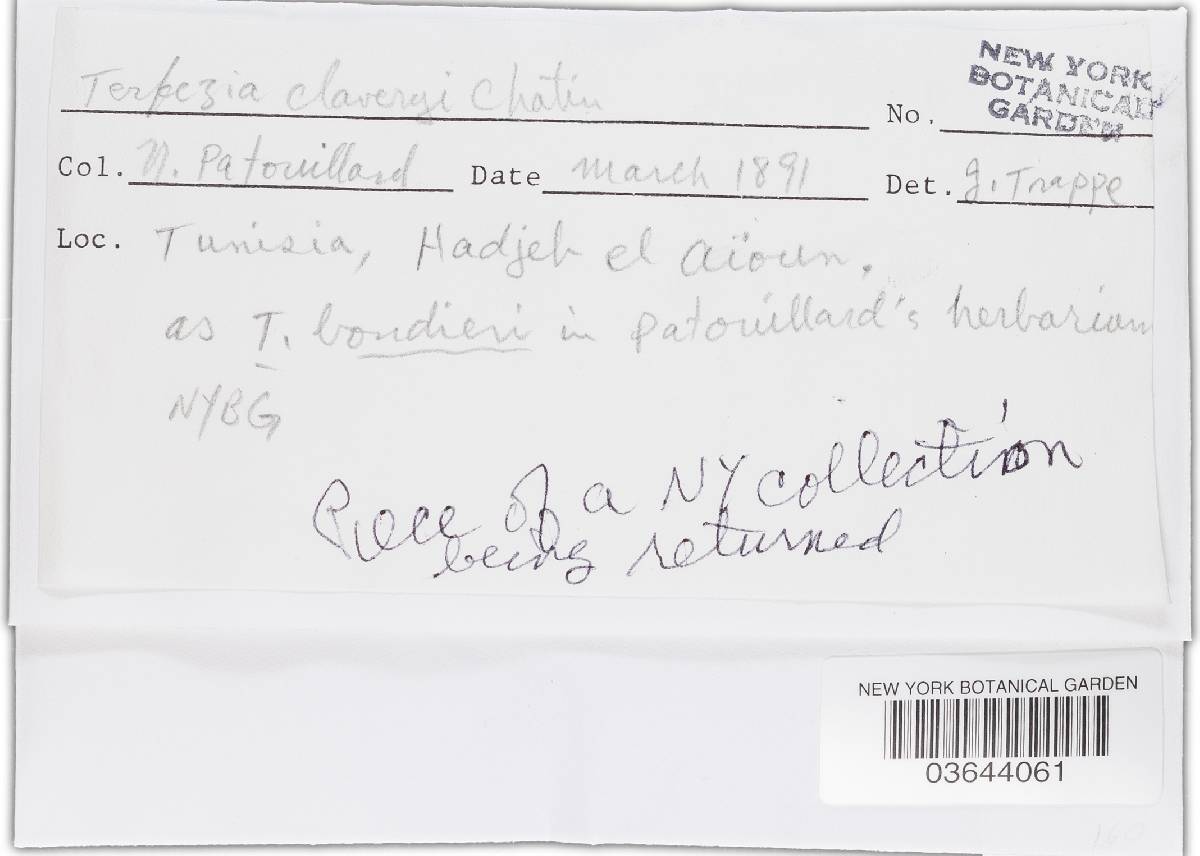 Terfezia claveryi Chatin
No.
NEW YORK
BOTANICAL
GARDEN
Col. N. Patouillard Date March 1891 Det. J. Trappe
Loc. Tunisia, Hadjeb el Aïoun.
as T. boudieri in Patouillard's herbarium
NYBG
Piece of a NY collection
being returned
NEW YORK BOTANICAL GARDEN
03644061